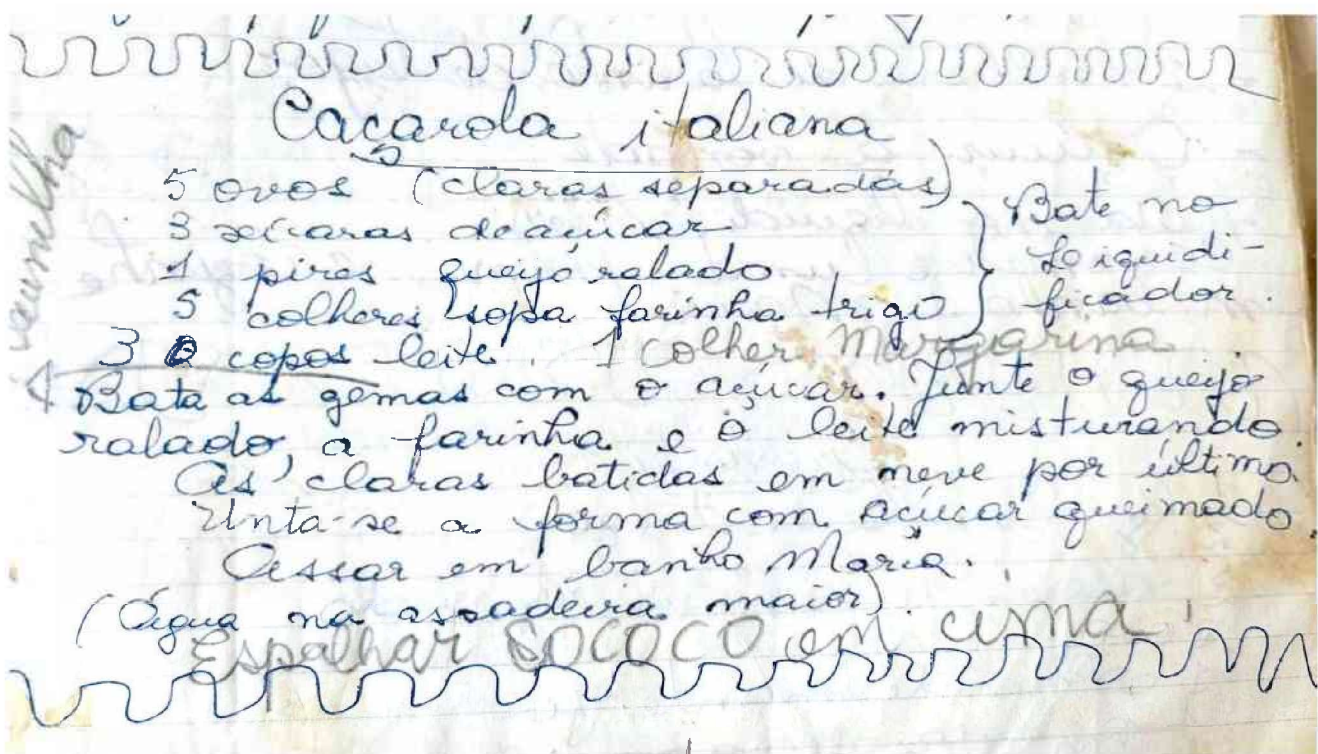 Caçarola italiana
5 ovos (claras separadas)
3 xícaras de açúcar
1 pires queijo ralado
5 colheres sopa farinha trigo
Bate no
Liquidi-
ficador.
3 copos leite. 1 colher Margarina
Bata as gemas com o açúcar. Junte o queijo
ralado, a farinha e o leite misturando.
As claras batidas em neve por último.
Unta-se a forma com açúcar queimado.
Assar em banho Maria.
(Água na assadeira maior).
Espalhar SOCOCO em cima
vermelha